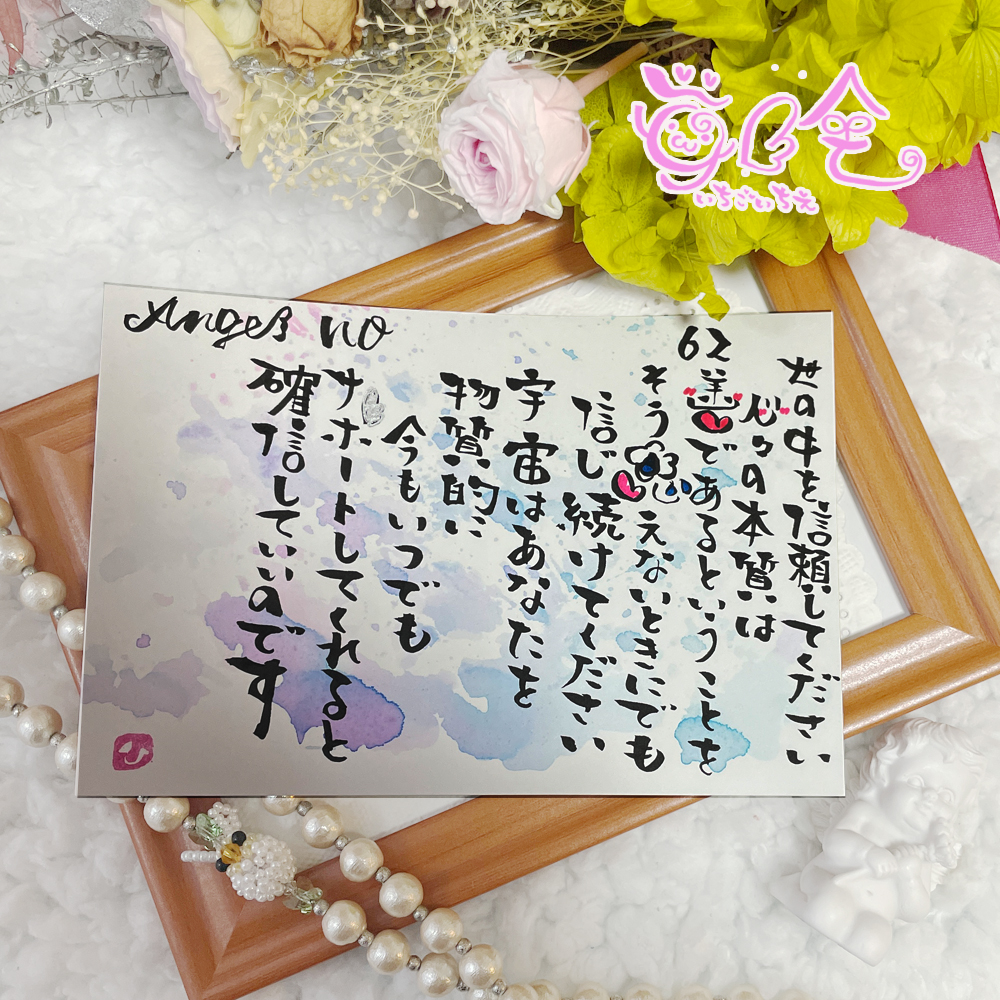 Angel's no
62
世の中を信頼してください
心々の本質は
善であるということを
そう思えないときにでも
信じ続けてください
宇宙はあなたを
物質的に
今もいつでも
サポートしてくれると
確信していいのです
いちごいちえ